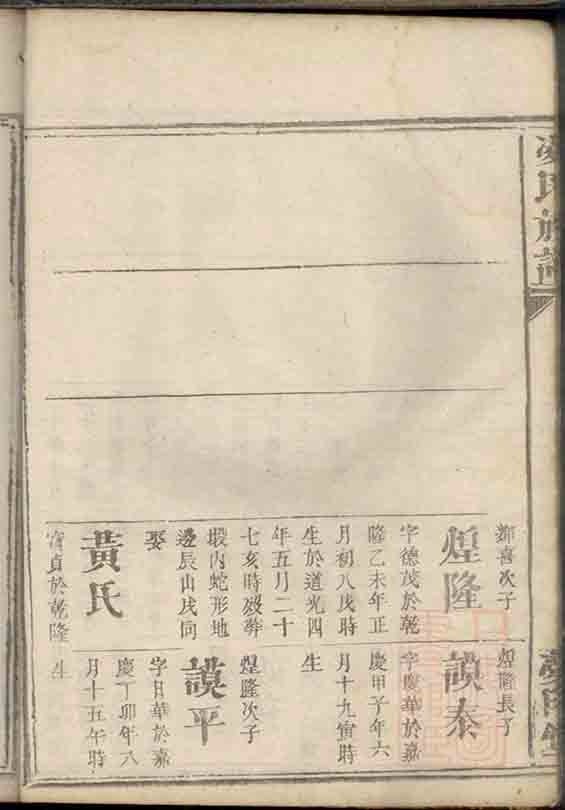 氏族譜
喜次子
煌隆
字德茂於乾
隆乙未年正
月初八戌時
生於道光四
年五月二十
七亥時歿葬
塅內蛇形地
邊辰山戌向
娶
黃氏
於乾隆
生
煌隆長子
謨泰
字慶華於嘉
慶甲子年六
月十九寅時
生
煌隆次子
謨平
字日華於嘉
慶丁卯年八
月十五午時